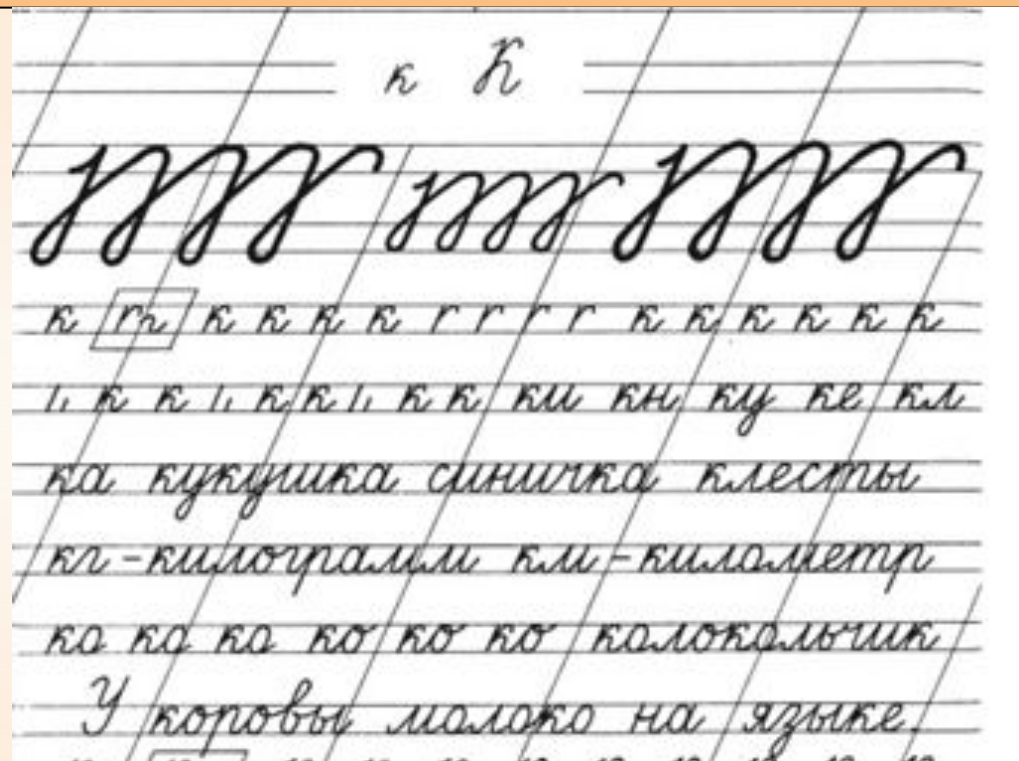 к К
к к к к к к к к к к к
к к к к к к ки кн ку ке кл
ка кукушка синичка клесты
кг-килограмм км-километр
ка ка ка ко ко ко колокольчик
У коровы молоко на языке.